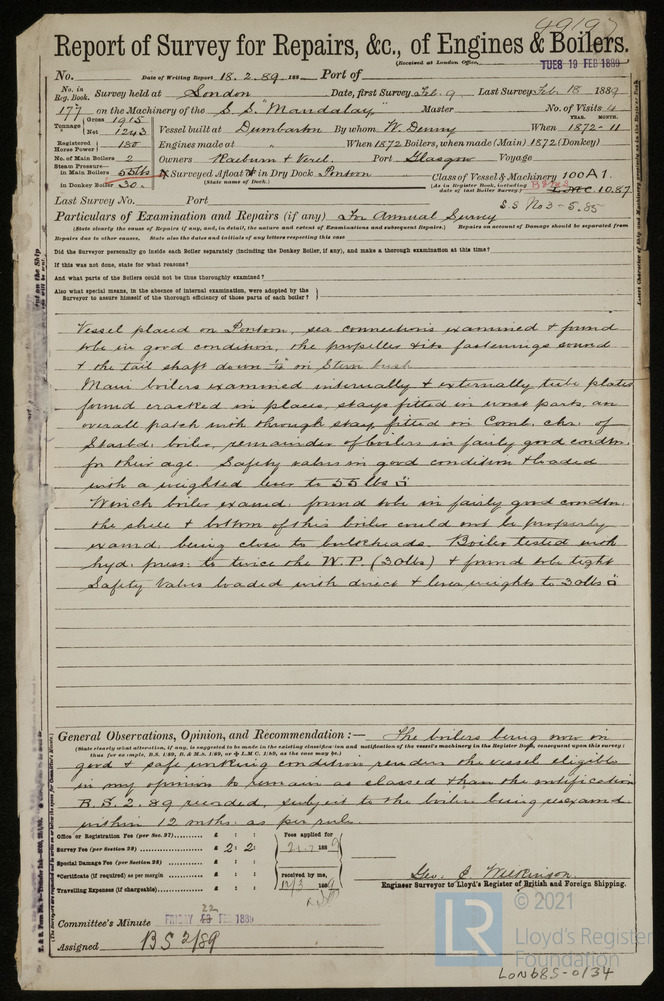 49197
Report of Survey for Repairs, &c., of Engines & Boilers.
(Received at London Office, TUES 19 FEB 1889
No. Date of Writing Report 18.2.89 188 Port of
No. in Reg. Book. Survey held at London Date, first Survey Feb. 9 Last Survey Feb. 18 1889
177 on the Machinery of the S.S. "Mandalay" Master No. of Visits 4
Tonnage Gross 1915 Net 1243 Vessel built at Dumbarton By whom W. Denny When YEAR. MONTH. 1872-11
Registered Horse Power 180 Engines made at " When 1872 Boilers, when made (Main) 1872 (Donkey)
No. of Main Boilers 2 Owners Raeburn & Verel. Port Glasgow Voyage
Steam Pressure in Main Boilers 55lbs Surveyed Afloat or in Dry Dock Pontoon Class of Vessel & Machinery 100A1.
in Donkey Boiler 30 (State name of Dock.) (As in Register Book, including date of last Boiler Survey.) 10.87
Last Survey No. Port S.S No3-5.85
Particulars of Examination and Repairs (if any) For Annual Survey
(State clearly the cause of Repairs if any, and, in detail, the nature and extent of Examinations and subsequent Repairs.) Repairs on account of Damage should be separated from
Repairs due to other causes, State also the dates and initials of any letters respecting this case
Did the Surveyor personally go inside each Boiler separately (including the Donkey Boiler, if any), and make a thorough examination at this time?
If this was not done, state for what reasons?
And what parts of the Boilers could not be thus thoroughly examined?
Also what special means, in the absence of internal examination, were adopted by the
Surveyor to assure himself of the thorough efficiency of those parts of each boiler?
Vessel placed on Pontoon, sea connections examined & found
to be in good condition, the propeller & its fastenings sound
& the tail shaft down on Stern bush
Main boilers examined internally & externally tube plates
found cracked in places, stays fitted in worst parts, an
overall patch with through stays fitted on Comb. chr. of
Starbd. boiler, remainder of boilers in fairly good condtn.
for their age. Safety valves in good condition & loaded
with a weighted lever to 55 lbs □
Winch boiler examd. found to be in fairly good condtn.
the shell & bottom of this boiler could not be properly
examd. being close to bulkheads. Boiler tested with
hyd. press: to twice the W.P. (30lbs) & found to be tight
Safety Valves loaded with direct & lever weights to 30lbs □
General Observations, Opinion, and Recommendation:— The boilers being now in
(State clearly what alteration, if any, is suggested to be made in the existing classification and notification of the vessel's machinery in the Register Book, consequent upon this survey;
thus for example, B.S. 1/89, B. & M.S. 1/89, or L.M.C. 1/89, as the case may be.)
good & safe working condition renders the vessel eligible
in my opinion to remain as classed & than the notification
B.S. 2.89 recorded, subject to the boilers being reexamd
within 12 mths. as per rule.
Office or Registration Fee (per Sec. 27) £ : : Fees applied for
Survey Fee (per Section 28) £ 2 : 2 : 188
Special Damage Fee (per Section 28) £ : :
*Certificate (if required) as per margin £ : : received by me,
Travelling Expenses (if chargeable) £ : : 12/3 1889
Geo. E. Wilkinson.
Engineer Surveyor to Lloyd's Register of British and Foreign Shipping.
Committee's Minute FRIDAY 22 FEB 1889
Assigned BS 2/89
LR
© 2021
Lloyd's Register
Foundation
LON685-0134